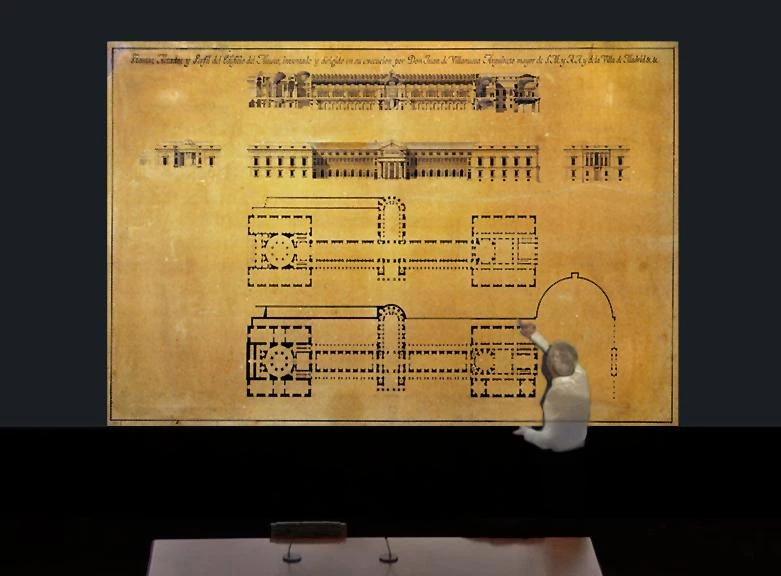 Plantas, Fachadas y Perfil del Edificio del Museo, inventado y dirigido en su execucion por Don Juan de Villanueva Arquitecto mayor de S.M. y A.A. y de la Villa de Madrid &. &.